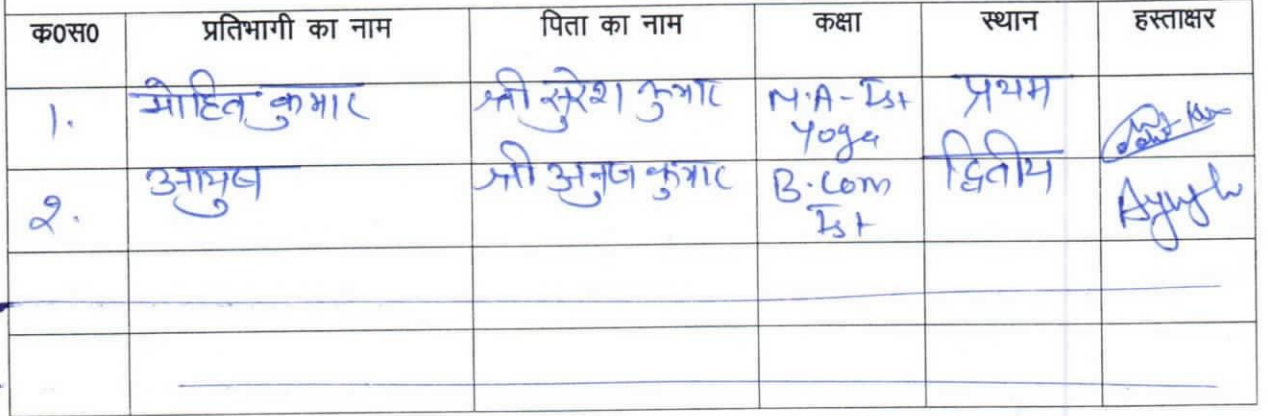 क०स० प्रतिभागी का नाम पिता का नाम कक्षा स्थान हस्ताक्षर
1. मोहित कुमार श्री सुरेश कुमार M.A-Ist प्रथम
Yoga
2. आयुष श्री अनुज कुमार B.com द्वितीय Ayush
Ist